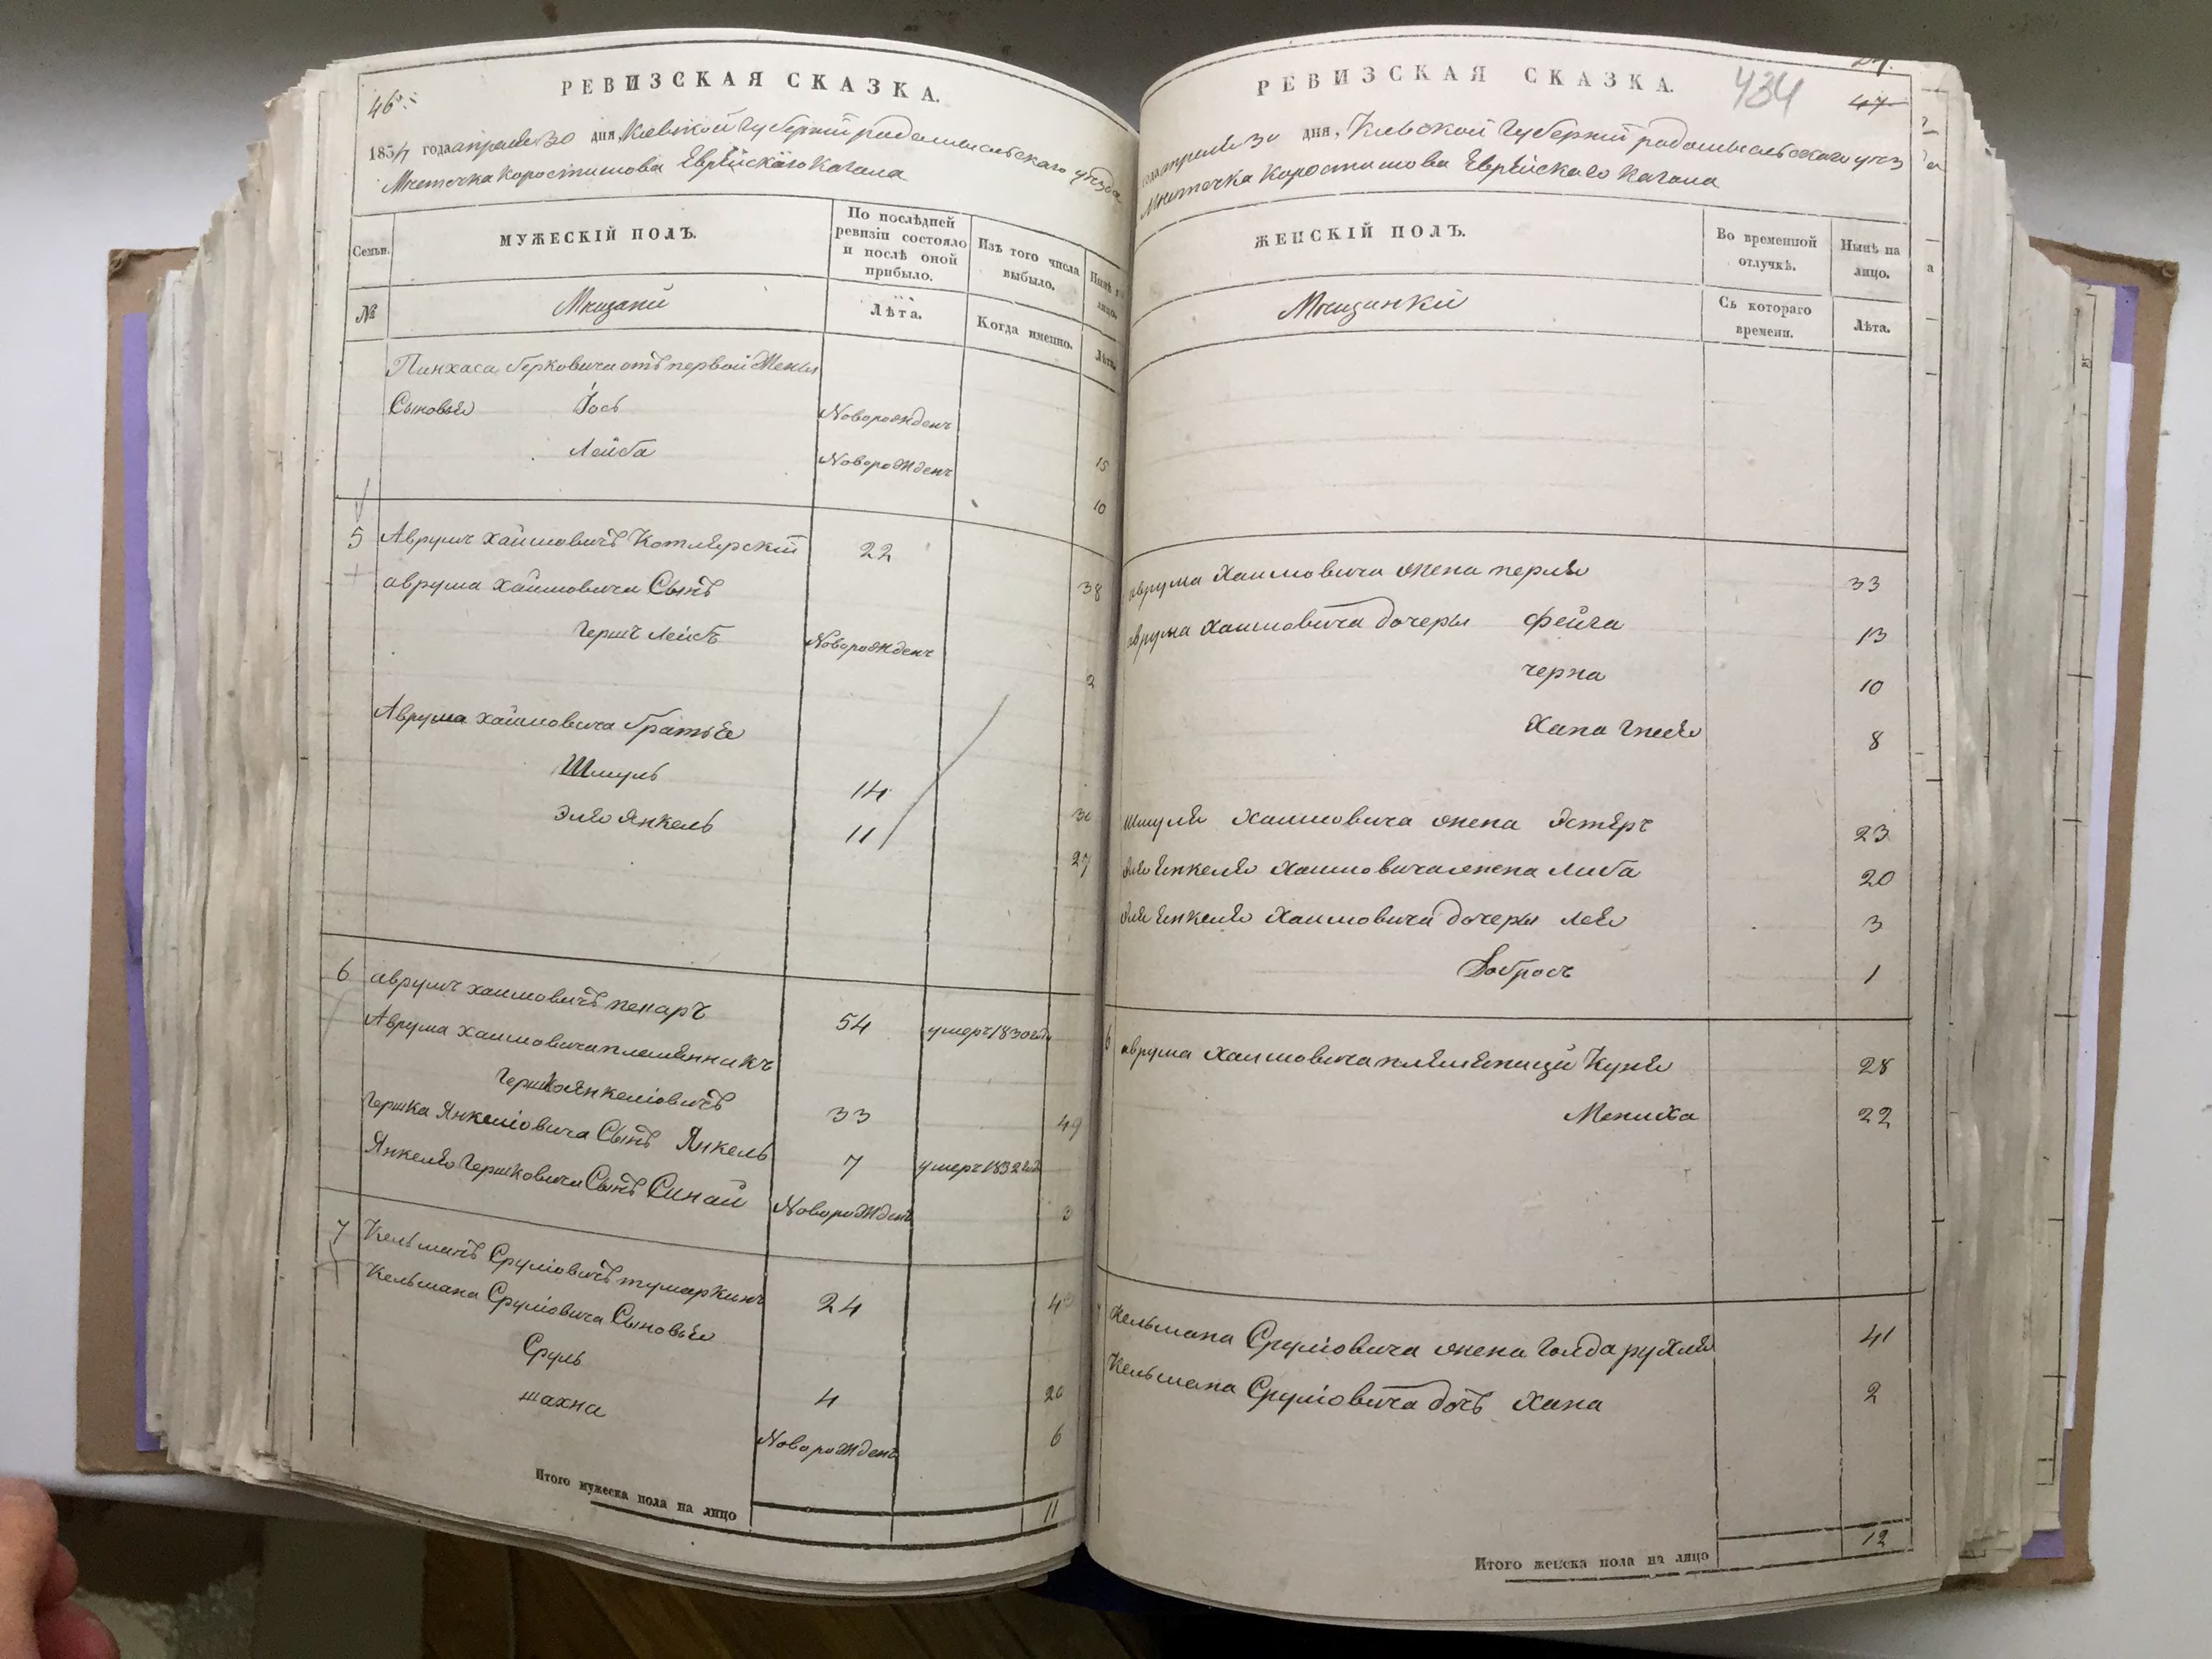 РЕВИЗСКАЯ СКАЗКА.
46
185 года апреля 30 дня, Киевской Губернїи радомысльскаго уѣзда
Мѣстечка Коростишова Еврѣйскаго Кагала
Семьи.
МУЖЕСКІЙ ПОЛЪ.
По послѣдней ревизіи состояло и послѣ оной прибыло.
Изъ того числа выбыло.
№
Мѣщани
Лѣта.
Когда именно.
Лѣта.
Пинхаса Берковича отъ первой Жены
Сыновья Іось Новорожденъ 15
Лейба Новорожденъ 10
5 Аврумъ Хаимовичъ Котлярскій 22 38
аврума Хаимовича Сынъ
Гершъ Лейбъ Новорожденъ 2
Аврума Хаимовича братья
Шмуль 14 30
Элья Янкель 11 27
6 аврумъ хаимовичъ пекаръ 54 умеръ 1830 года
Аврума хаимовича племянникъ
Гершко Янкеліовичъ 33 49
Гершка Янкеліовича Сынъ Янкель 7 умеръ 1832 года
Янкеля Гершковича Сынъ Синай Новорожденъ 3
7 Кельманъ Сруліовичъ тумаркинъ 24 40
Кельмана Сруліовича Сыновья
Сруль 4 20
шахна Новорожденъ 6
Итого мужеска пола на лицо 11
РЕВИЗСКАЯ СКАЗКА.
434
47
апреля 30 дня, Киевской Губернїи радомысльскаго уѣз
Мѣстечка Коростишова Еврѣйскаго Кагала
ЖЕНСКІЙ ПОЛЪ.
Во временной отлучкѣ.
Нынѣ на лицо.
Мѣщанки
Съ котораго времени.
Лѣта.
аврума Хаимовича жена перля 33
аврума Хаимовича дочеры фейга 13
черна 10
Хана Гнеся 8
шмуля Хаимовича жена Эстеръ 23
Эля Янкеля Хаимовича жена Либа 20
Эля Янкеля Хаимовича дочеры Лея 3
Добрось 1
6 аврума Хаимовича племяници Куня 28
Мениха 22
Кельмана Сруліовича жена Голда рухля 41
Кельмана Сруліовича дочь Хана 2
Итого женска пола на лицо 12